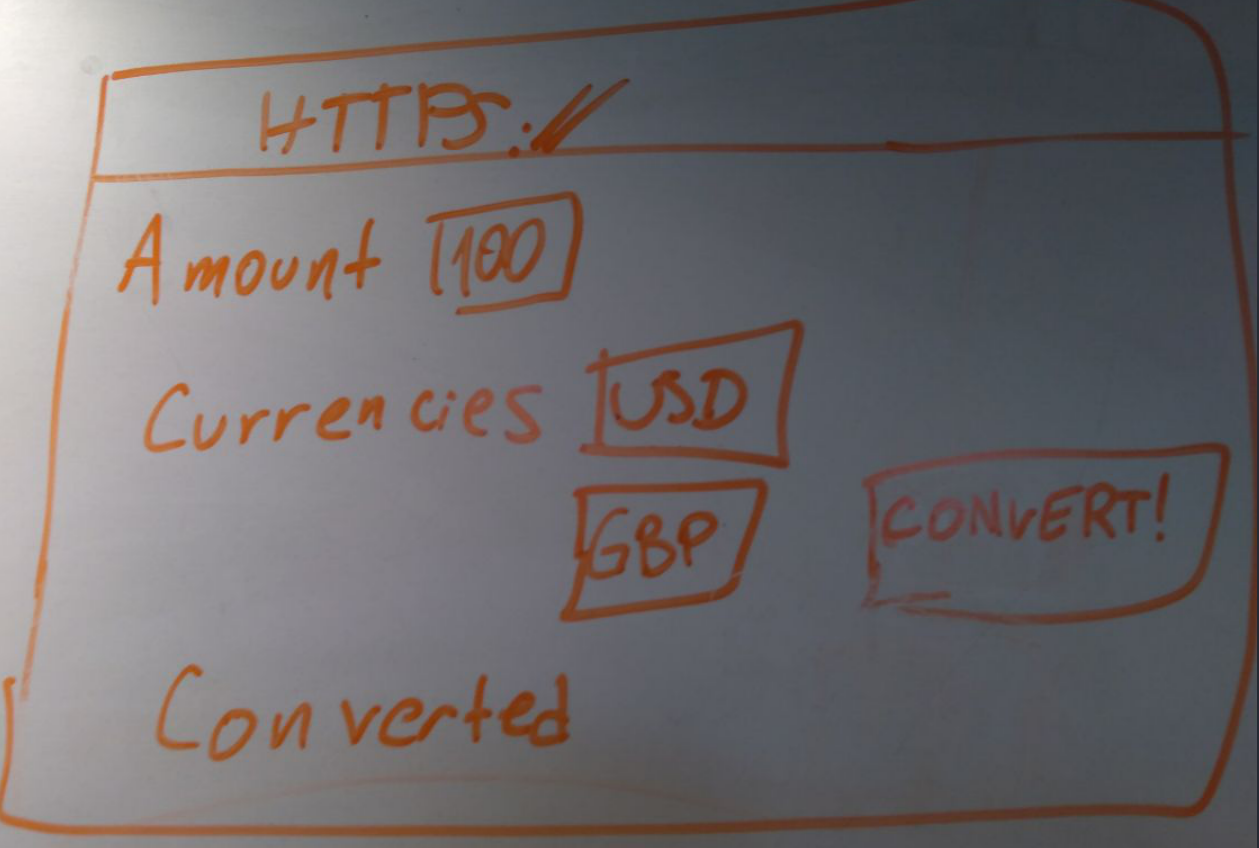 HTTPS://
Amount 100
Currencies USD
GBP
CONVERT!
Converted